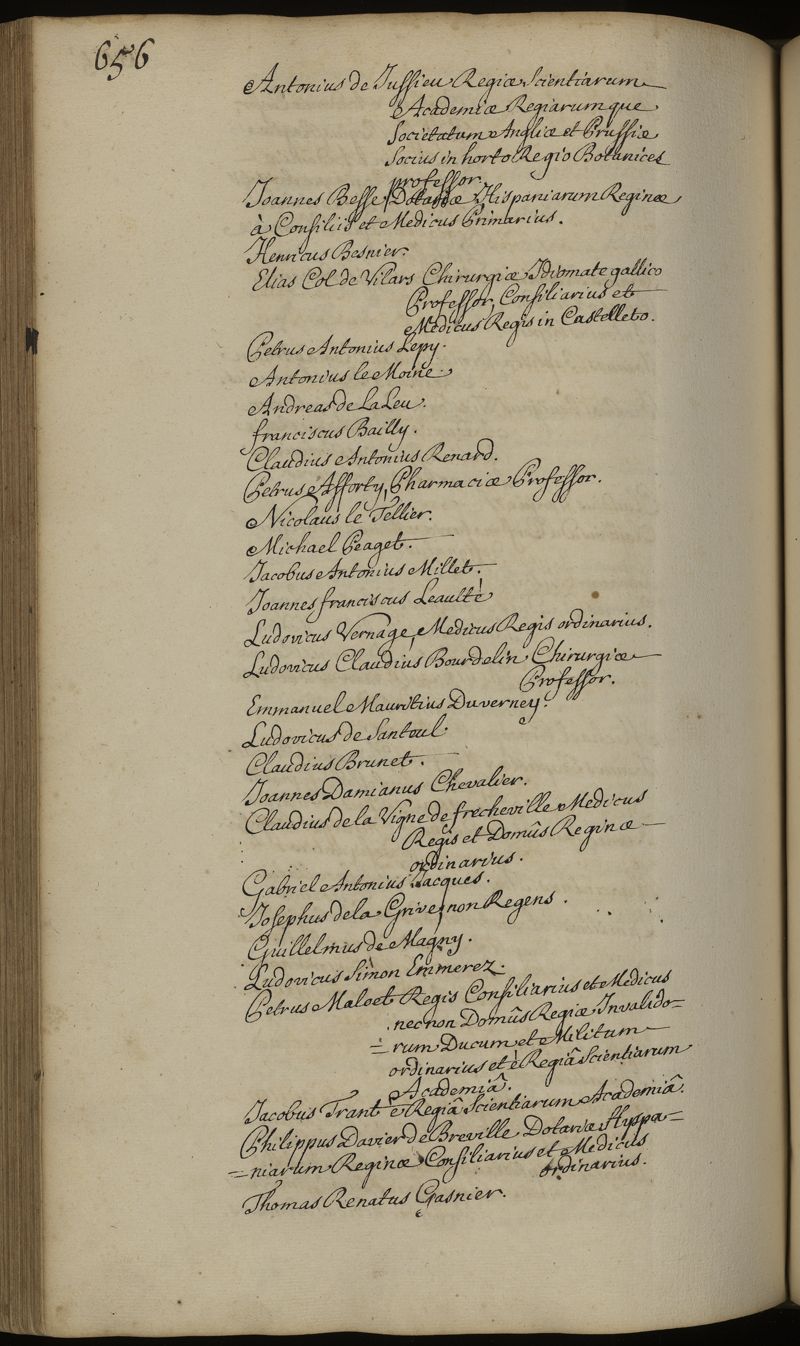 656
Antonius de Jussieu Regiæ Scientiarum
Academiæ Regiarumque
Societatum Angliæ et Prussiæ
Socius in horto Regio Botanices
professor.
Joannes Besse, Dotariæ Hispaniarum Reginæ
à Consiliis et Medicus Primarius.
Henricus Besnier.
Elias Col de Vilars Chirurgiæ Idiomate gallico
Professor, Consiliarius et
Medicus Regis in Castelleto.
Petrus Antonius Lepy.
Antonius le Moine.
Andreas de La Leu.
franciscus Bailly.
Claudius Antonius Renard.
Petrus Afforty, Pharmaciæ Professor.
Nicolaus le Tellier.
Michael Peaget.
Jacobus Antonius Millet.
Joannes franciscus Leaulté
Ludovicus Vernage, Medicus Regis ordinarius.
Ludovicus Claudius Bourdelin Chirurgiæ
Professor.
Emmanuel Mauritius Duverney.
Ludovicus de Santeul
Claudius Brunet.
Joannes Damianus Chevalier.
Claudius de la Vigne de frecheville Medicus
Regis et Domûs Reginæ
ordinarius.
Gabriel Antonius Jacques.
Josephus de la Grive, non Regens.
Guillelmus de Magny.
Ludovicus Simon Emmerez.
Petrus Maloet Regis Consiliarius et Medicus
necnon Domûs Regiæ Invalido=
=rum Ducum et Militum
ordinarius et è Regiâ Scientiarum
Academiâ.
Jacobus Trant è Regiâ Scientiarum Academiâ.
Philippus Davier de Breville Dotariæ Hyspa=
=niarum Reginæ Consiliarius et Medicus
ordinarius.
Thomas Renatus Gasnier.